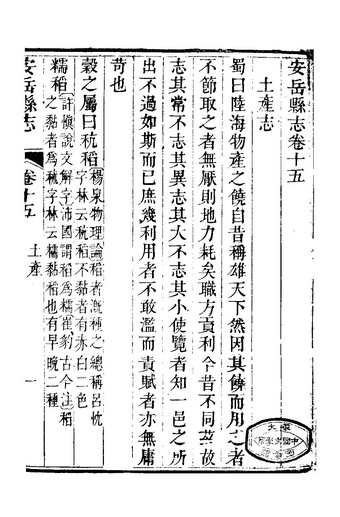 安岳縣志卷十五
土產志
蜀曰陸海物產之饒自昔稱雄天下然因其饒而用之者
不節取之者無厭則地力耗矣職方貢利今昔不同茲故
志其常不志其異志其大不志其小使覽者知一邑之所
出不過如斯而已庶幾利用者不敢濫而責賦者亦無庸
苛也
穀之屬曰秔稻楊泉物理論稻者漑種之總稱呂忱
字林云秔稻不黏者有赤白二色
糯稻許愼說文解字沛國謂稻爲糯崔豹古今注稻
之黏者爲秫字林云糯黏稻也有早晚二種
安岳縣志
卷十五
土產
一